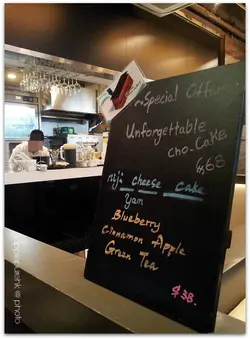 ~Special Offer~
Unforgettable
Cho-Cake
$68
Miji cheese cake
Yam
Blueberry
Cinnamon Apple
Green Tea
$38.